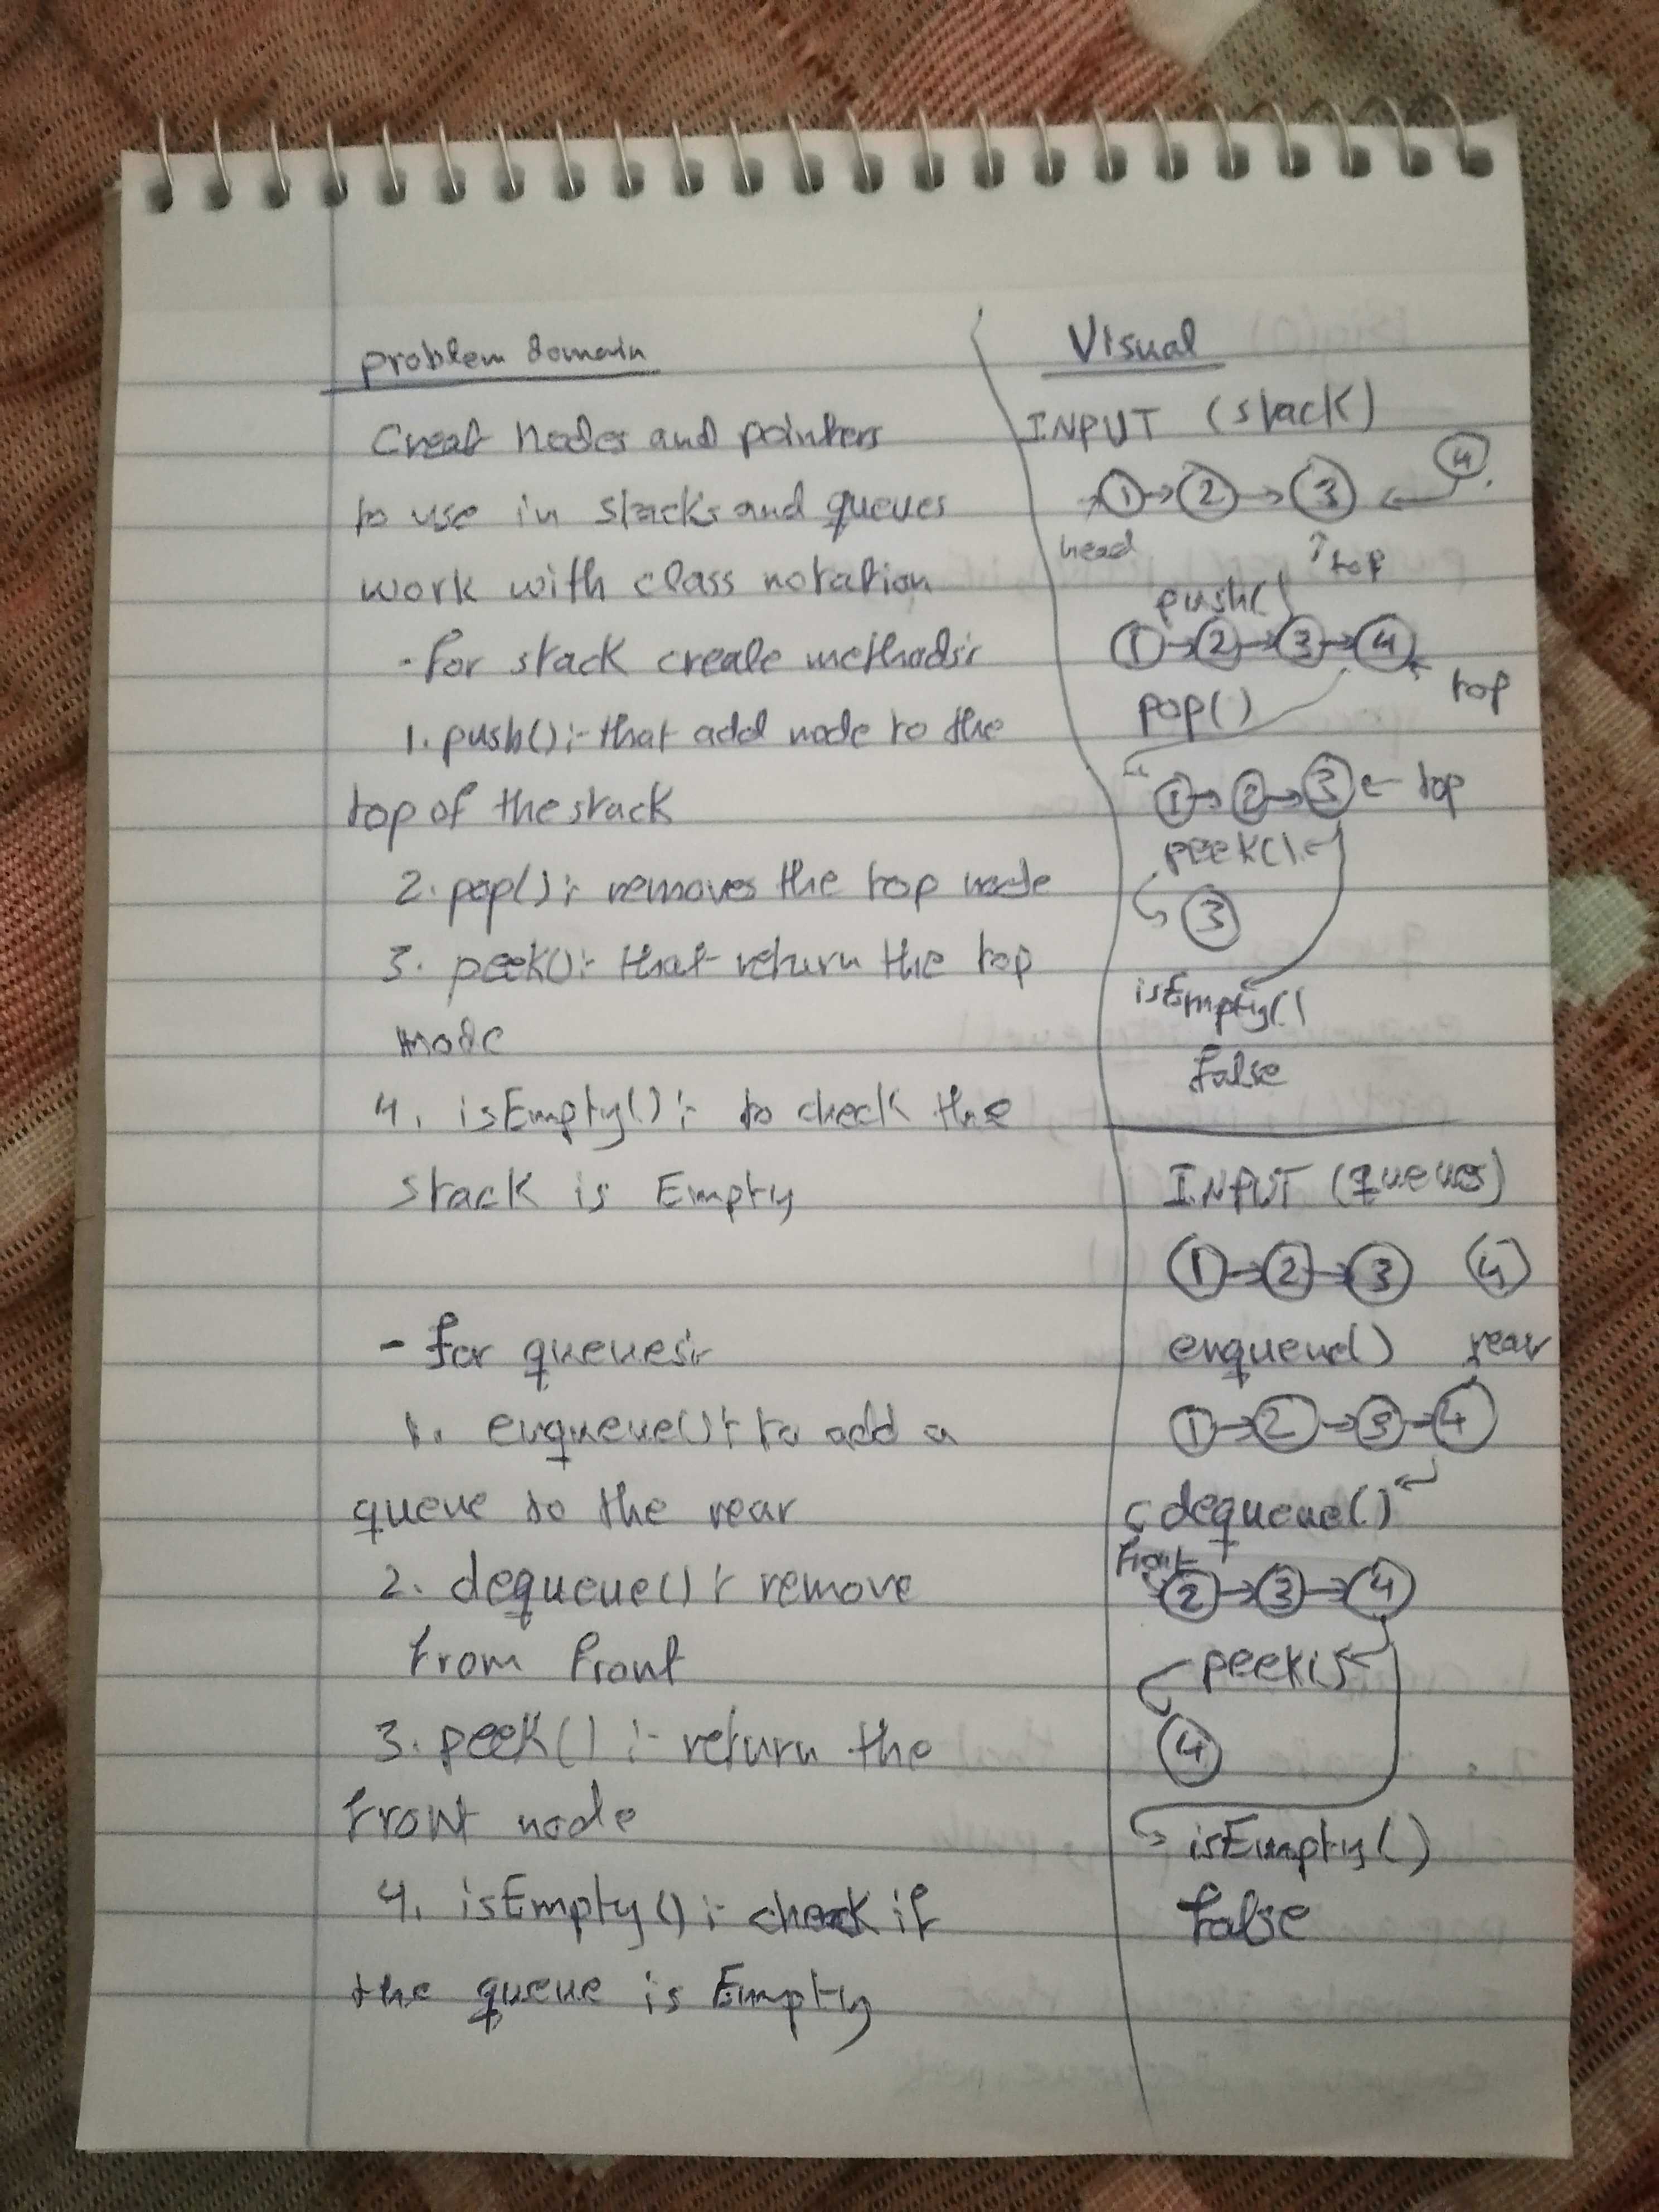 problem domain
Creat nodes and pointers
to use in stacks and queues
work with class notation
- for stack create methods:-
1. push() :- that add node to the
top of the stack
2. pop() :- removes the top node
3. peek() :- that return the top
node
4. isEmpty() :- to check the
stack is Empty
- for queues:-
1. enqueue() :- to add a
queue to the rear
2. dequeue() :- remove
from front
3. peek() :- return the
front node
4. isEmpty() :- check if
the queue is Empty
Visual
INPUT (stack)
4
1 → 2 → 3 ←
head ↑ top
push()
1 → 2 → 3 → 4
top
pop()
1 → 2 → 3 ← top
peek()
3
isEmpty()
false
INPUT (queues)
1 → 2 → 3 4
enqueue() rear
1 → 2 → 3 → 4
dequeue()
front
2 → 3 → 4
peek()
4
isEmpty()
false